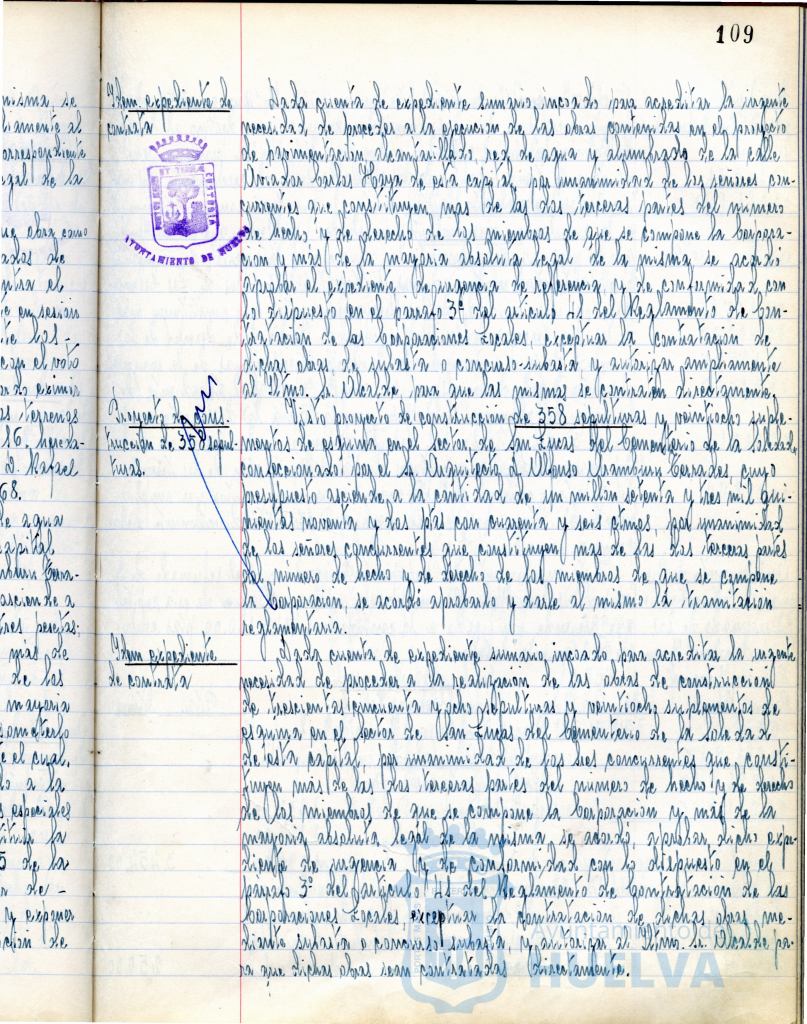 109
nisma, se
diamente al
orrespondiente
egal de la
ue obra como
ados de
ntra el
e en sesion
te los -
con el voto
ordo eximir
s terrenos
16, hereda-
D. Rafael
68.
de agua
capital
asciende a
tres pesetas;
mas de
de los
mayoria
someterlo
e el cual,
do a la
s especiales
titua la
5 de la
r de -
y exponer
cion de
Idem. expediente de
contrata
AYUNTAMIENTO DE HUELVA
Dada cuenta de expediente sumario, incoado para acreditar la urgente
necesidad de proceder a la ejecucion de las obras contenidas en el proyecto
de pavimentacion, alcantarillado, red de agua y alumbrado de la calle
Aviador Carlos Haya de esta capital, por unanimidad de los señores con-
currentes que constituyen mas de las dos terceras partes del número
de hecho y de derecho de los miembros de que se compone la Corpora-
cion y más de la mayoria absoluta legal de la misma se acordó
aprobar el expediente de urgencia de referencia y de conformidad con
lo dispuesto en el parrafo 3º del articulo 41 del Reglamento de Con-
tratación de las Corporaciones Locales, exceptuar la contratacion de
dichas obras, de subasta o concurso-subasta y autorizar ampliamente
al Iltmo. Sr. Alcalde para que las mismas se contraten directamente.
Proyecto de cons-
trucción de 358 sepul-
turas.
Visto proyecto de construccion de 358 sepulturas y veintiocho suple-
mentos de esquina en el sector de San Lucas del Cementerio de la Soledad,
confeccionado por el Sr. Arquitecto D. Alfonso Aramburu Terrades, cuyo
presupuesto asciende a la cantidad de un millón setenta y tres mil qui-
nientas noventa y dos ptas con cuarenta y seis ctmos, por unanimidad
de los señores concurrentes que constituyen mas de las dos terceras partes
del número de hecho y de derecho de los miembros de que se compone
la Corporacion, se acordó aprobarlo y darle al mismo la tramitación
reglamentaria.
Idem expediente
de contrata
Dada cuenta de expediente sumario incoado para acreditar la urgente
necesidad de proceder a la realización de las obras de construccion
de trescientas cincuenta y ocho sepulturas y veintiocho suplementos de
esquina en el sector de San Lucas del Cementerio de la Soledad
de esta capital, por unanimidad de los sres concurrentes que consti-
tuyen más de las dos terceras partes del numero de hecho y de derecho
de los miembros de que se compone la Corporación y más de la
mayoria absoluta legal de la misma se acordó, aprobar dicho expe-
diente de urgencia y de conformidad con lo dispuesto en el
parrafo 3º del articulo 41 del Reglamento de Contratación de las
Corporaciones Locales, exceptuar la contratación de dichas obras, me-
diante subasta o concurso subasta, y autorizar al Iltmo. Sr. Alcalde pa-
ra que dichas obras sean contratadas directamente.
Ayuntamiento de
HUELVA